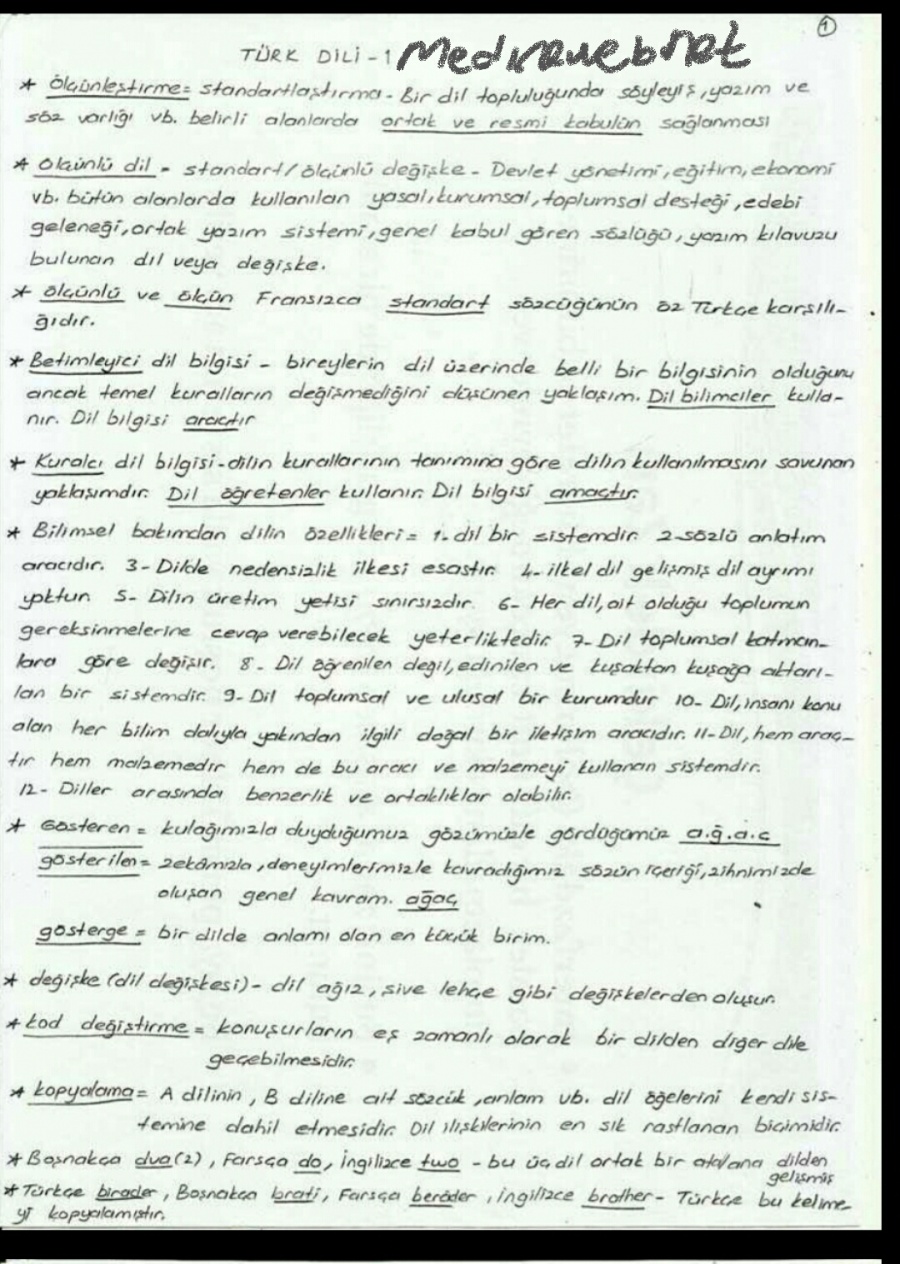 1
TÜRK DİLİ - 1 Medineweb.net
* Ölçünleştirme = standartlaştırma - Bir dil topluluğunda söyleyiş, yazım ve
söz varlığı vb. belirli alanlarda ortak ve resmi kabulün sağlanması
* Ölçünlü dil - standart / ölçünlü değişke - Devlet yönetimi, eğitim, ekonomi
vb. bütün alanlarda kullanılan yasal, kurumsal, toplumsal desteği, edebi
geleneği, ortak yazım sistemi, genel kabul gören sözlüğü, yazım kılavuzu
bulunan dil veya değişke.
* ölçünlü ve ölçün Fransızca standart sözcüğünün öz Türkçe karşılı-
ğıdır.
* Betimleyici dil bilgisi - bireylerin dil üzerinde belli bir bilgisinin olduğunu
ancak temel kuralların değişmediğini düşünen yaklaşım. Dil bilimciler kulla-
nır. Dil bilgisi araçtır
* Kuralcı dil bilgisi - dilin kurallarının tanımına göre dilin kullanılmasını savunan
yaklaşımdır. Dil öğretenler kullanır. Dil bilgisi amaçtır.
* Bilimsel bakımdan dilin özellikleri = 1- dil bir sistemdir. 2- sözlü anlatım
aracıdır. 3- Dilde nedensizlik ilkesi esastır. 4- ilkel dil gelişmiş dil ayrımı
yoktur. 5- Dilin üretim yetisi sınırsızdır. 6- Her dil, ait olduğu toplumun
gereksinmelerine cevap verebilecek yeterliktedir. 7- Dil toplumsal katman-
lara göre değişir. 8- Dil öğrenilen değil, edinilen ve kuşaktan kuşağa aktarı-
lan bir sistemdir. 9- Dil toplumsal ve ulusal bir kurumdur 10- Dil, insanı konu
alan her bilim dalıyla yakından ilgili doğal bir iletişim aracıdır. 11- Dil, hem araç-
tır hem malzemedir hem de bu aracı ve malzemeyi kullanan sistemdir.
12- Diller arasında benzerlik ve ortaklıklar olabilir.
* Gösteren = kulağımızla duyduğumuz gözümüzle gördüğümüz a.ğ.a.ç
gösterilen = zekâmızla, deneyimlerimizle kavradığımız sözün içeriği, zihnimizde
oluşan genel kavram. ağaç
gösterge = bir dilde anlamı olan en küçük birim.
* değişke (dil değişkesi) - dil ağız, şive lehçe gibi değişkelerden oluşur.
* kod değiştirme = konuşurların eş zamanlı olarak bir dilden diğer dile
geçebilmesidir.
* kopyalama = A dilinin, B diline ait sözcük, anlam vb. dil öğelerini kendi sis-
temine dahil etmesidir. Dil ilişkilerinin en sık rastlanan biçimidir.
* Boşnakça dva (2), Farsça do, İngilizce two - bu üç dil ortak bir ata/ana dilden
gelişmiş
* Türkçe birader, Boşnakça brati, Farsça berâder, ingilizce brother - Türkçe bu kelime-
yi kopyalamıştır.